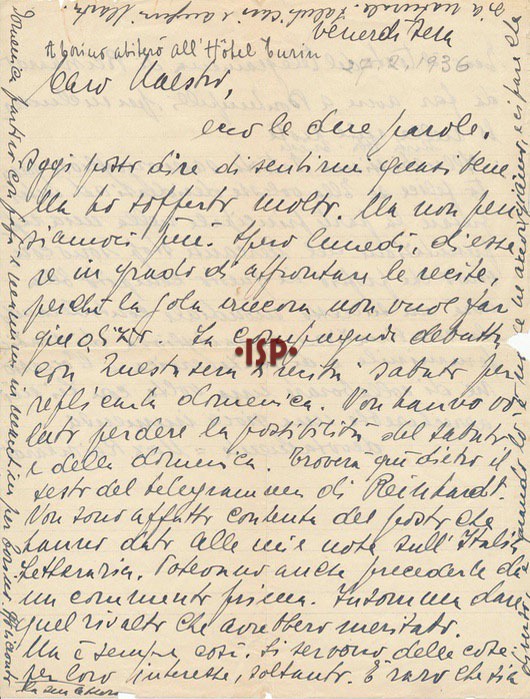 Venerdì sera
A Torino abiterò all'Hôtel Turin
27.2.1936
Caro Maestro,
ecco le due parole.
Oggi posso dire di sentirmi quasi bene
Ma ho sofferto molto. Ma non pen
siamoci più. Spero lunedì di esse
re in grado di affrontare le recite,
perché la gola ancora non vuol far
giudizio. La compagnia debutta
con Questa sera sabato per
replicarla domenica. Non hanno vo
luto perdere la possibilità del sabato
e della domenica. Troverà qui dietro il
testo del telegramma di Reinhardt.
Non sono affatto contenta del posto che
hanno dato alle mie note sull'Italia
Letteraria. Potevano anche precederle da
un commento prima. Insomma dare
quel risalto che avrebbero meritato.
Ma è sempre così. Si servono delle cose
per loro interesse, soltanto. È raro che sia
·ISP·
Domenica partirò con per Torino